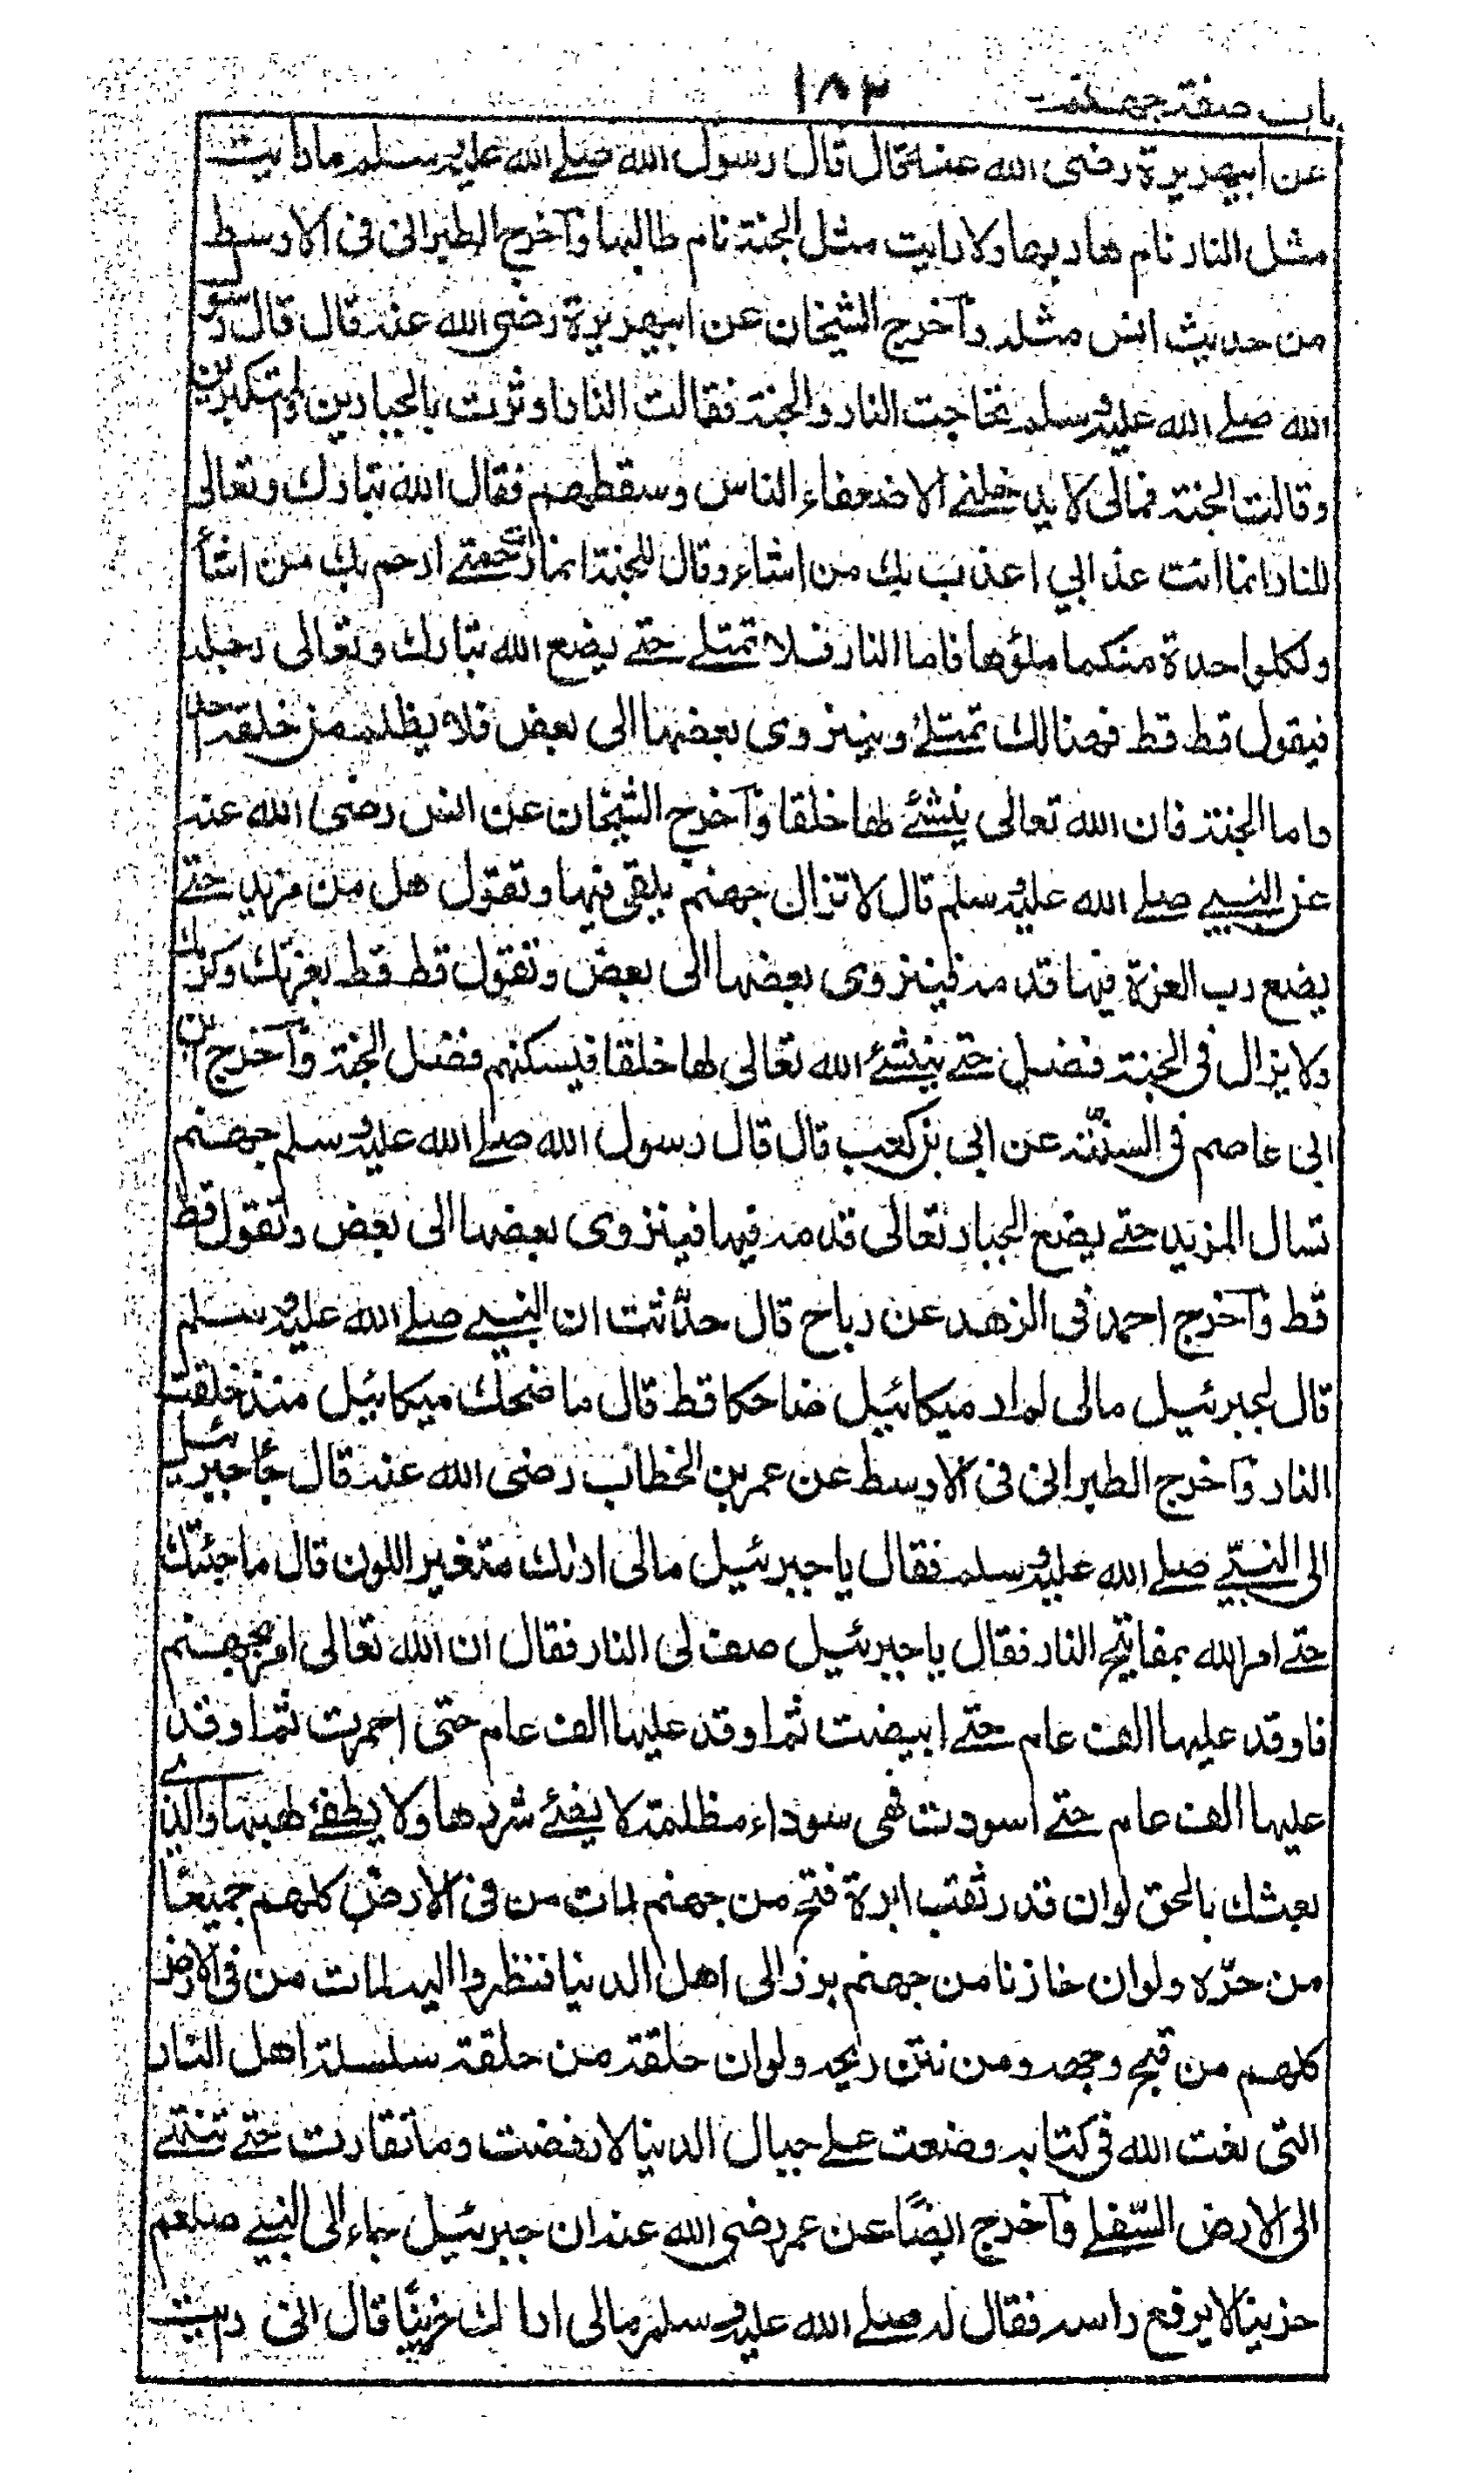 باب صفة جهنم ١٨٢
عن ابيهريرة رضى الله عنه قال قال رسول الله صلے الله عليه وسلم ما رايت
مثل النار نام هاربها ولا رايت مثل الجنة نام طالبها وآخرج الطبرانى فى الاوسط
من حديث انس مثله وآخرج الشيخان عن ابيهريرة رضى الله عنه قال قال رسول
الله صلے الله عليه وسلم تحاجت النار والجنة فقالت النار اوثرت بالجبارين والمتكبرين
وقالت الجنة فمالى لا يدخلنے الا ضعفاء الناس وسقطهم فقال الله تبارك وتعالى
للنار انما انت عذابي اعذب بك من اشاء وقال للجنة انما انت رحمتے ارحم بك من اشأ
ولكلواحدة منكما ملؤها فاما النار فلا تمتلے حتے يضع الله تبارك وتعالى رجله
فيقول قط قط فهنالك تمتلے وينزوى بعضها الى بعض فلا يظلم من خلقه احدا
واما الجنة فان الله تعالى ينشئے لها خلقا وآخرج الشيخان عن انس رضى الله عنه
عن النبے صلے الله عليه وسلم قال لا تزال جهنم يلقى فيها وتقول هل من مزيد حتے
يضع رب العزة فيها قدمه فينزوى بعضها الى بعض وتقول قط قط بعزتك وكرمك
ولا يزال فى الجنة فضل حتے ينشئے الله تعالى لها خلقا فيسكنهم فضل الجنة وآخرج ابن
ابى عاصم فى السنّة عن ابى بن كعب قال قال رسول الله صلے الله عليه وسلم جهنم
تسال المزيد حتے يضع الجبار تعالى قدمه فيها فينزوى بعضها الى بعض وتقول قط
قط وآخرج احمد فى الزهد عن رباح قال حدّثت ان النبے صلے الله عليه وسلم
قال لجبرئيل مالى لم ار ميكائيل ضاحكا قط قال ما ضحك ميكائيل منذ خلقت
النار وآخرج الطبرانى فى الاوسط عن عمر بن الخطاب رضى الله عنه قال جأ جبرئيل
الى النبّے صلے الله عليه وسلم فقال يا جبرئيل مالى اراك متغير اللون قال ما جئتك
حتے امر الله بمفاتيح النار فقال يا جبرئيل صف لى النار فقال ان الله تعالى امر بجهنم
فاوقد عليها الف عام حتے ابيضت ثم اوقد عليها الف عام حتى احمرت ثم اوقد
عليها الف عام حتے اسودت فهى سوداء مظلمة لا يضئے شررها ولا يطفئے لهبها والذے
بعثك بالحق لو ان قدر ثقب ابرة فتح من جهنم لمات من فى الارض كلهم جميعًا
من حرّه ولو ان خازنا من جهنم برز الى اهل الدنيا فنظروا اليه لمات من فى الارض
كلهم من قبح وجهه ومن نتن ريحه ولو ان حلقة من حلقة سلسلة اهل النار
التى نعت الله فى كتابه وضعت علے جبال الدنيا لارفضت وما تقارت حتے تنتهے
الى الارض السّفلے وآخرج ايضًا عن عمر رضى الله عنه ان جبرئيل جاء الى النبے صلعم
حزينا لا يرفع راسه فقال له صلے الله عليه وسلم مالى اراك حزينًا قال انى رايت